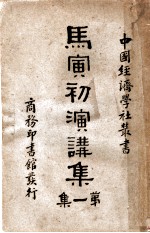 中國經濟學社叢書
馬寅初演講集
第一集
商務印書館發行